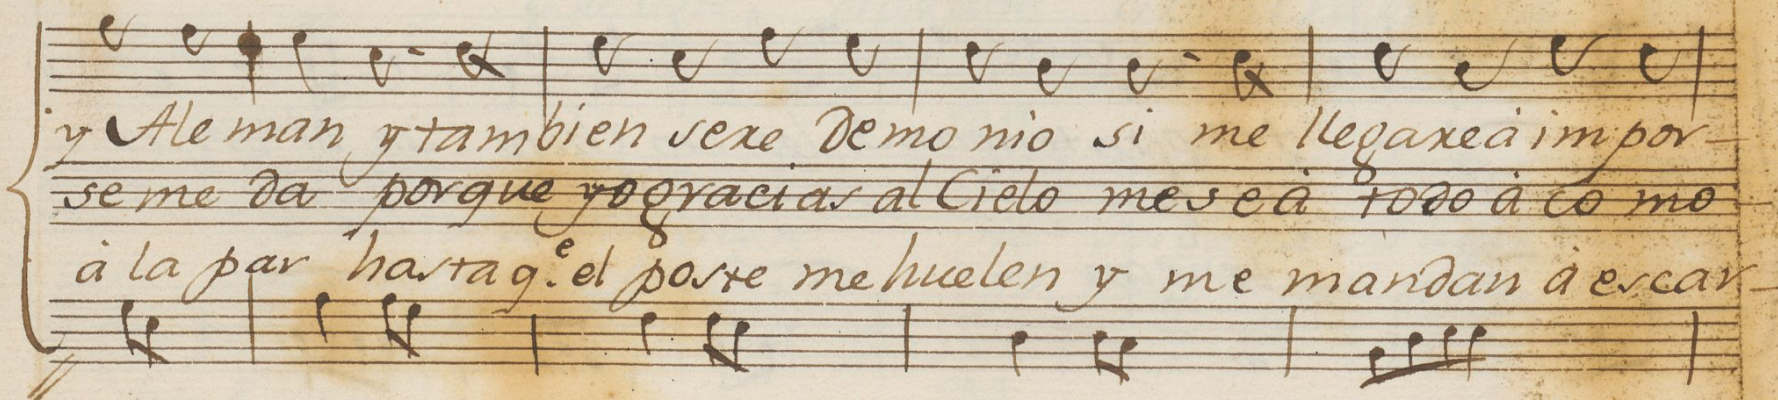 y Ale man y tam bien sere Demo nio si me llegare à im por-
se me da porque yo gracias al Cielo me se à todo à co mo
à la par hasta q.e el poste me huelen y me mandan à escar-